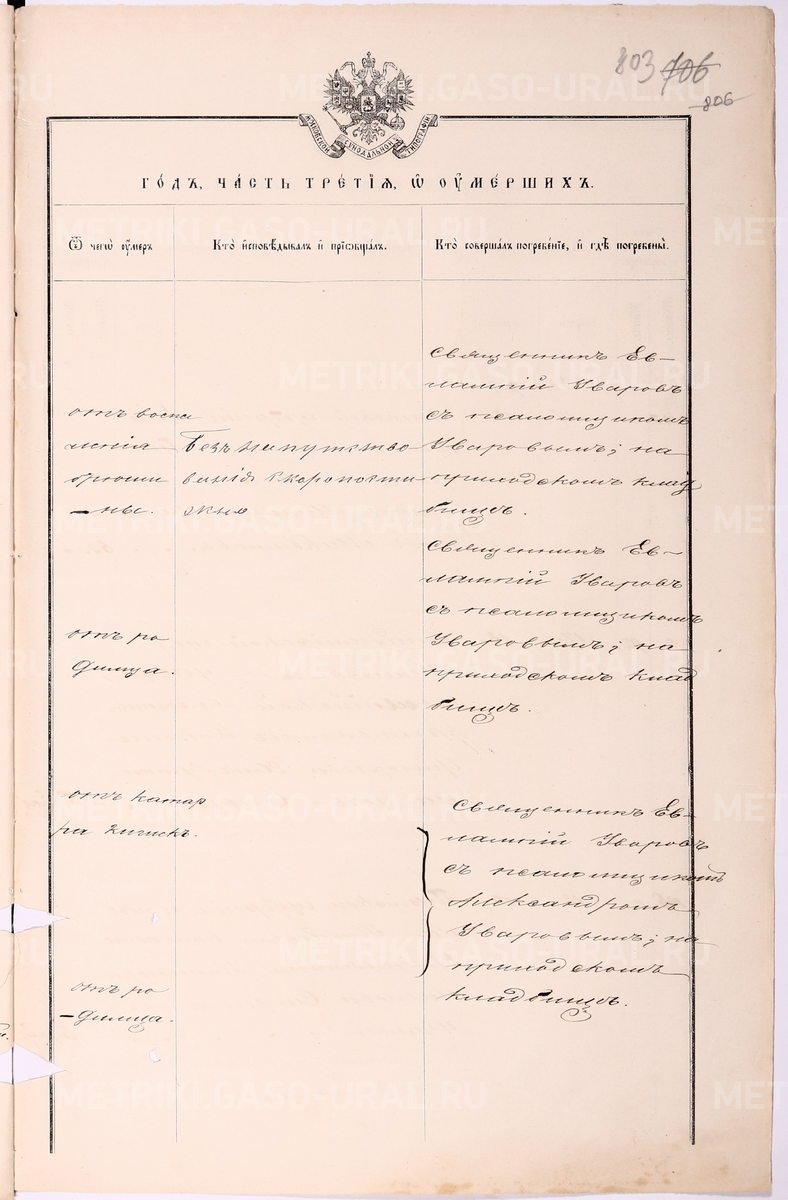 803 706
806
МОСКОВСКОЙ СѴНОДАЛЬНОЙ ТИПОГРАФІИ
ГО́ДЪ, ЧА́СТЬ ТРЕ́ТІѦ, Ѡ҆ ОУ҆МЕ́РШИХЪ.
Ѿ чегѡ̀ оу҆́меръ
Кто̀ и҆сповѣ́дывалъ и҆ прїѡбща́лъ.
Кто̀ соверша́лъ погребе́нїе, и҆ гдѣ̀ погребены̀.
отъ воспа
ленія
брюши
-ны.
Безъ напутство
ванія скоропости
жно
священникъ Ев-
лампій Уваровъ
съ псаломщикомъ
Уваровымъ; на
приходскомъ клад
бищѣ.
отъ ро
димца.
священникъ Ев-
лампій Уваровъ
съ псаломщикомъ
Уваровымъ; на
приходскомъ клад
бищѣ.
отъ катар
ра кишекъ.
отъ ро
-димца.
священникъ Ев-
лампій Уваровъ
съ псаломщикомъ
Александромъ
Уваровымъ; на
приходскомъ
кладбищѣ.
METRIKI.GASO-URAL.RU